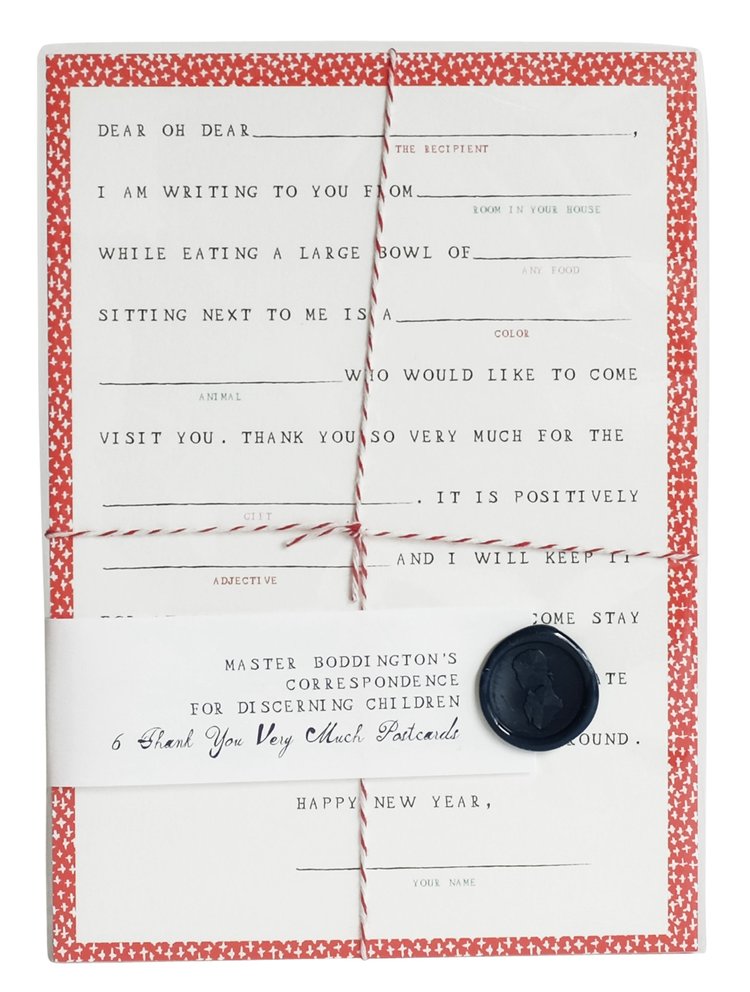 DEAR OH DEAR ,
THE RECIPIENT
I AM WRITING TO YOU FROM
ROOM IN YOUR HOUSE
WHILE EATING A LARGE BOWL OF
ANY FOOD
SITTING NEXT TO ME IS A
COLOR
WHO WOULD LIKE TO COME
ANIMAL
VISIT YOU. THANK YOU SO VERY MUCH FOR THE
. IT IS POSITIVELY
GIFT
AND I WILL KEEP IT
ADJECTIVE
COME STAY
MASTER BODDINGTON'S
CORRESPONDENCE
FOR DISCERNING CHILDREN
6 Thank You Very Much Postcards
HAPPY NEW YEAR,
YOUR NAME